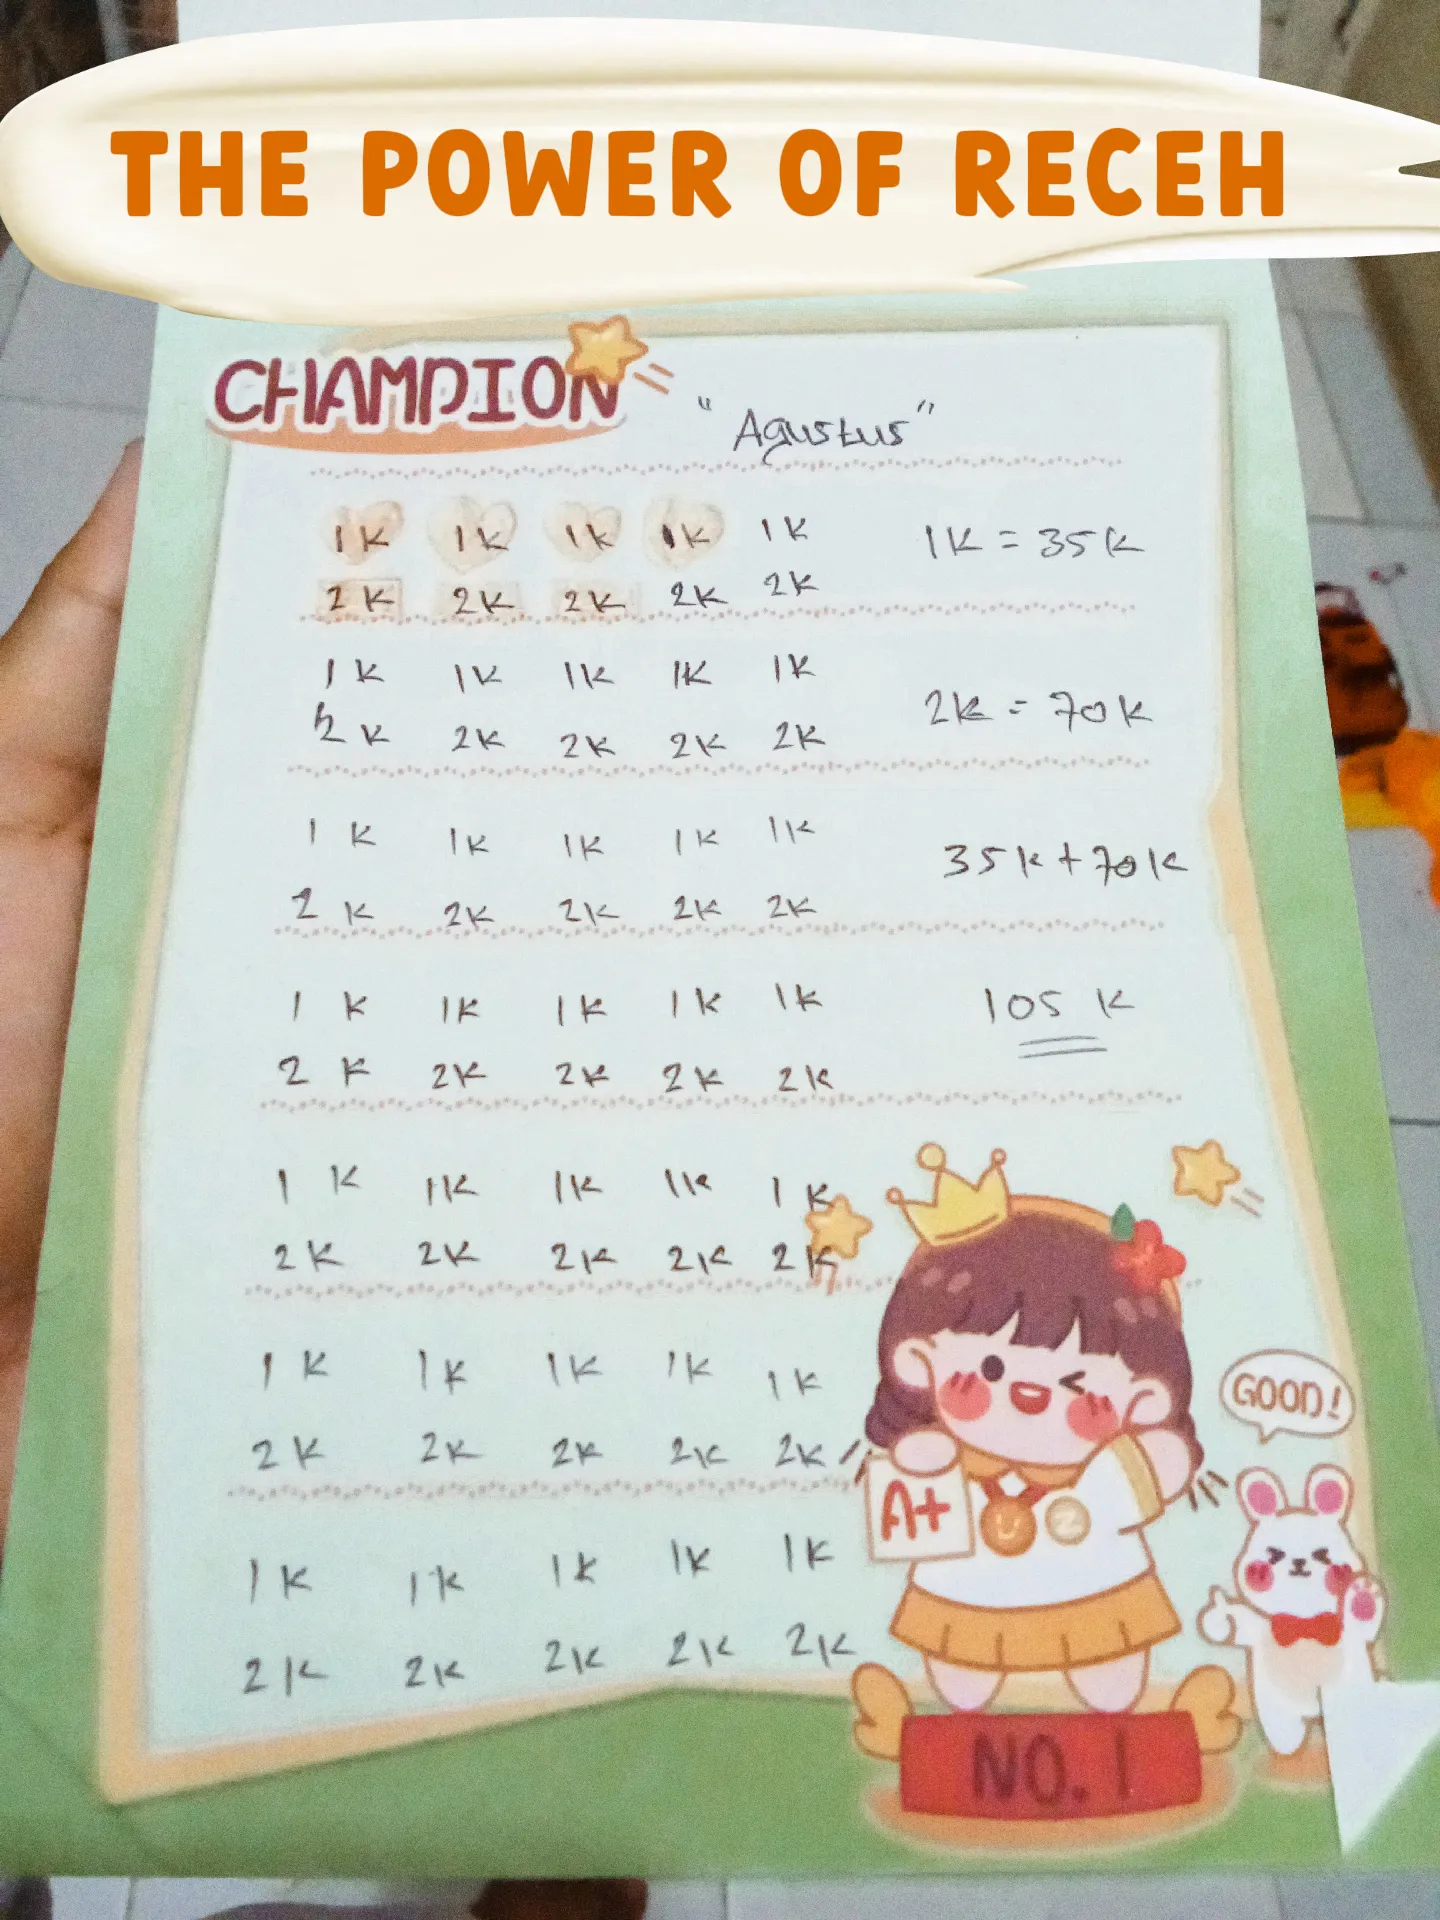 THE POWER OF RECEH
CHAMPION
"Agustus"
1K 1K 1K 1K 1K
2K 2K 2K 2K 2K
1K = 35K
1K 1K 1K 1K 1K
2K 2K 2K 2K 2K
2K = 70K
1K 1K 1K 1K 1K
2K 2K 2K 2K 2K
35K + 70K
1K 1K 1K 1K 1K
2K 2K 2K 2K 2K
105 K
1K 1K 1K 1K 1K
2K 2K 2K 2K 2K
1K 1K 1K 1K 1K
2K 2K 2K 2K 2K
1K 1K 1K 1K 1K
2K 2K 2K 2K 2K
GOOD!
A+
NO. 1